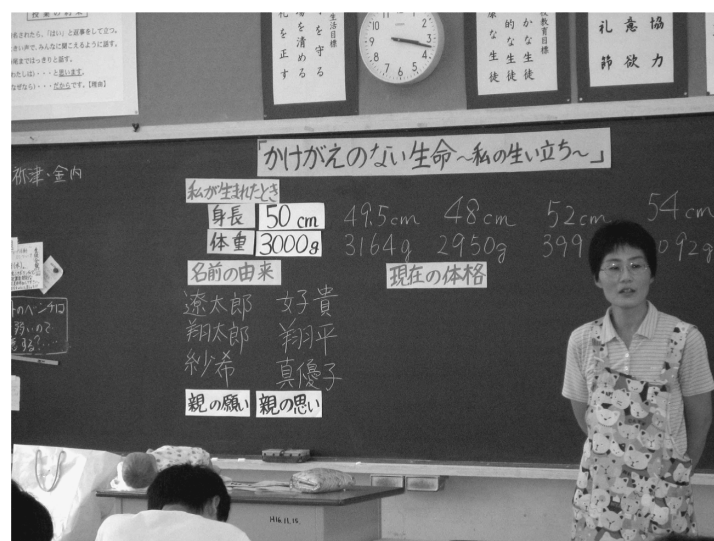 名されたら、「はい」と返事をして立つ。
さい声で、みんなに聞こえるように話す。
尾まではっきりと話す。
わたしは)・・・と思います。
なぜなら)・・・だからです。【理由】
生活目標
を守る
場を清める
礼を正す
校教育目標
かな生徒
的な生徒
康な生徒
協力
意欲
礼節
祢津・金内
「かけがえのない生命～私の生い立ち～」
私が生まれたとき
身長 50cm 49.5cm 48cm 52cm 54cm
体重 3000g 3164g 2950g 399 092g
名前の由来 現在の体格
遼太郎 女子貴
翔太郎 翔平
紗希 真優子
親の願い 親の思い
H16.11.15